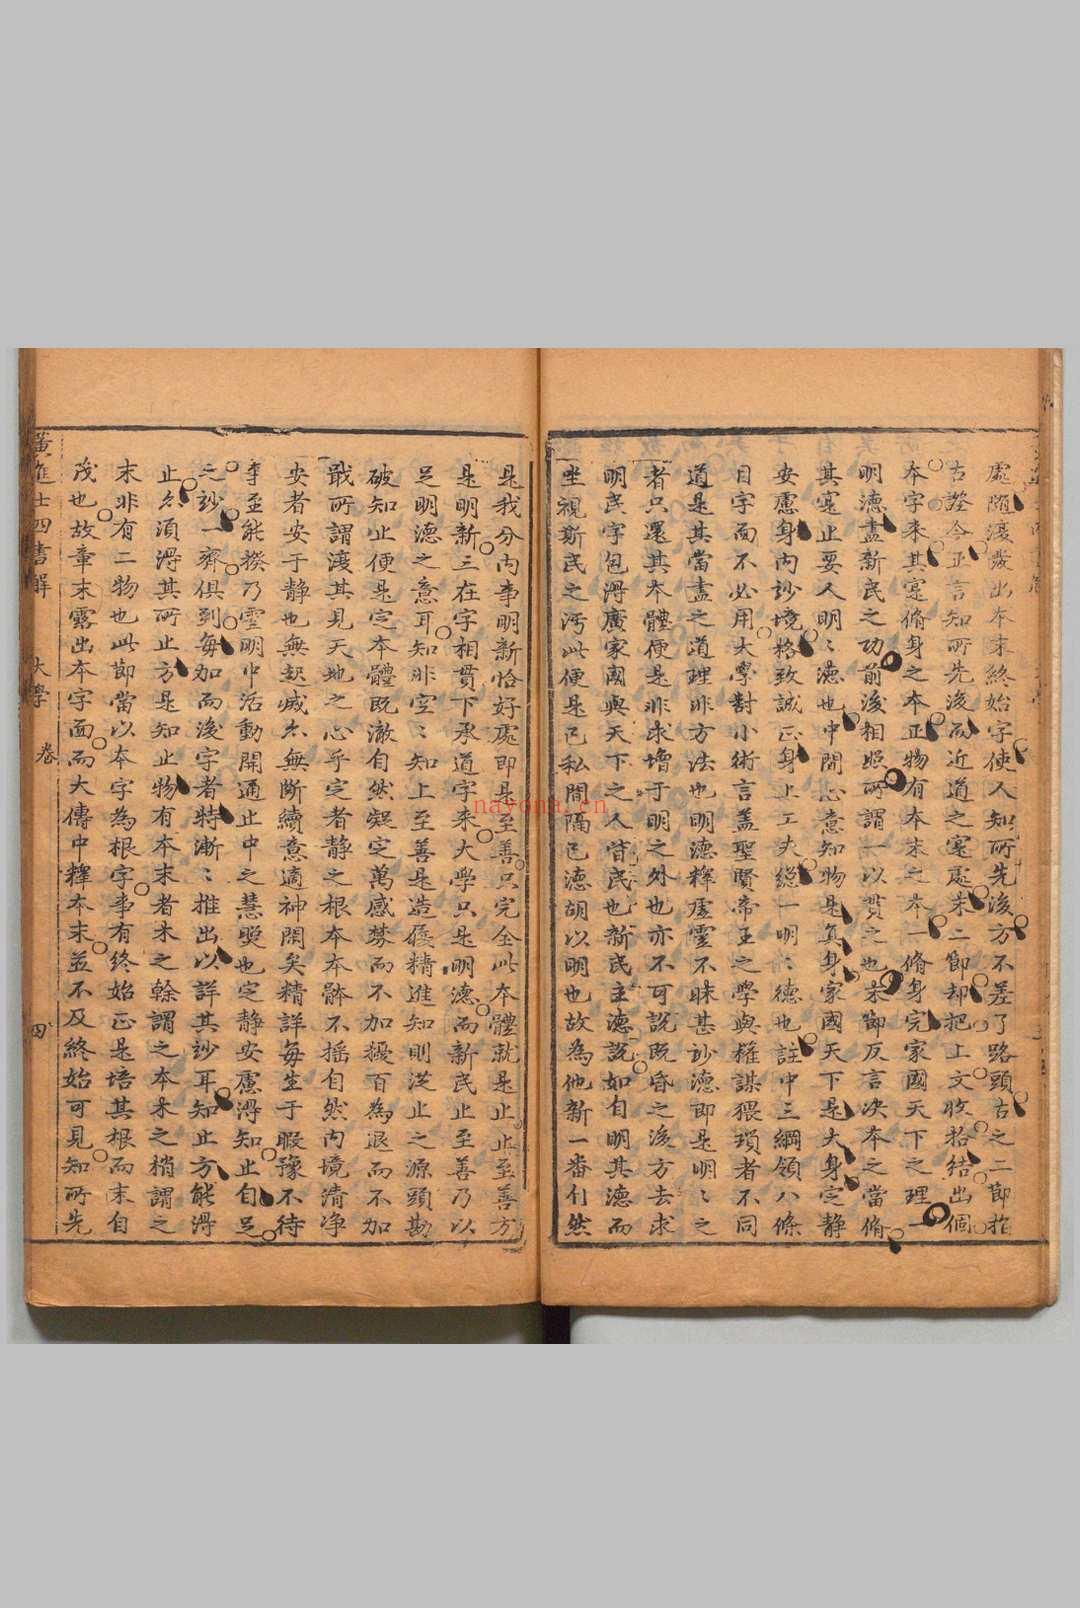 處隨後發出本末終始字使人知所先後方不差了路頭古之二節指
古證今正言知所先後而近道之寔處末二節却把上文收拾結出個
本字来其寔脩身之本正物有本末之本一脩身完家國天下之理一
明德盡新民之功前後相照所謂一以貫之也末節反言决本之當脩
其寔止要人明〻德也中間心意知物是真身家國天下是大身定靜
安慮身内妙境格致誠正身上工夫總一明〻德也註中三綱領八條
目字面不必用大學對小術言蓋聖賢帝王之學與權謀猥瑣者不同
道是其當盡之道理非方法也明德釋虛靈不昧甚妙德即是明〻之
者只還其本體便是非求增于明之外也亦不可説既昏之後方去求
明民字包淂廣家國與天下之人皆民也新民主德説如自明其德而
坐視斯民之汚此便是已私間隔已德胡以明也故為他新一番們然
是我分内事明新恰好處即是至善只完全此本體就是止止至善方
是明新三在字相貫下承道字来大學只是明德而新民止至善乃以
足明德之意耳知非空〻知上至善是造優精進知則従止之源頭勘
破知止便是定本體既澈自然凝定萬感勞而不加擾百為退而不加
戢所謂復其見天地之心乎定者靜之根本本體不搖自然内境清净
安者安于靜也無起滅亦無断續意適神閑矣精詳每生于暇豫不待
事至能揆乃靈明中活動開通止中之慧覺也定靜安慮淂知止自足
之妙一齊俱到每加而後字者特漸〻推出以詳其妙耳知止方能淂
止亦須淂其所止方是知止物有本末者木之幹謂之本末之稍謂之
末非有二物也此節當以本字為根字事有終始正是培其根而末自
茂也故章末露出本字面而大傳中釋本末並不及終始可見知所先
黃進士四書解 大學 卷 四
nayona.cn